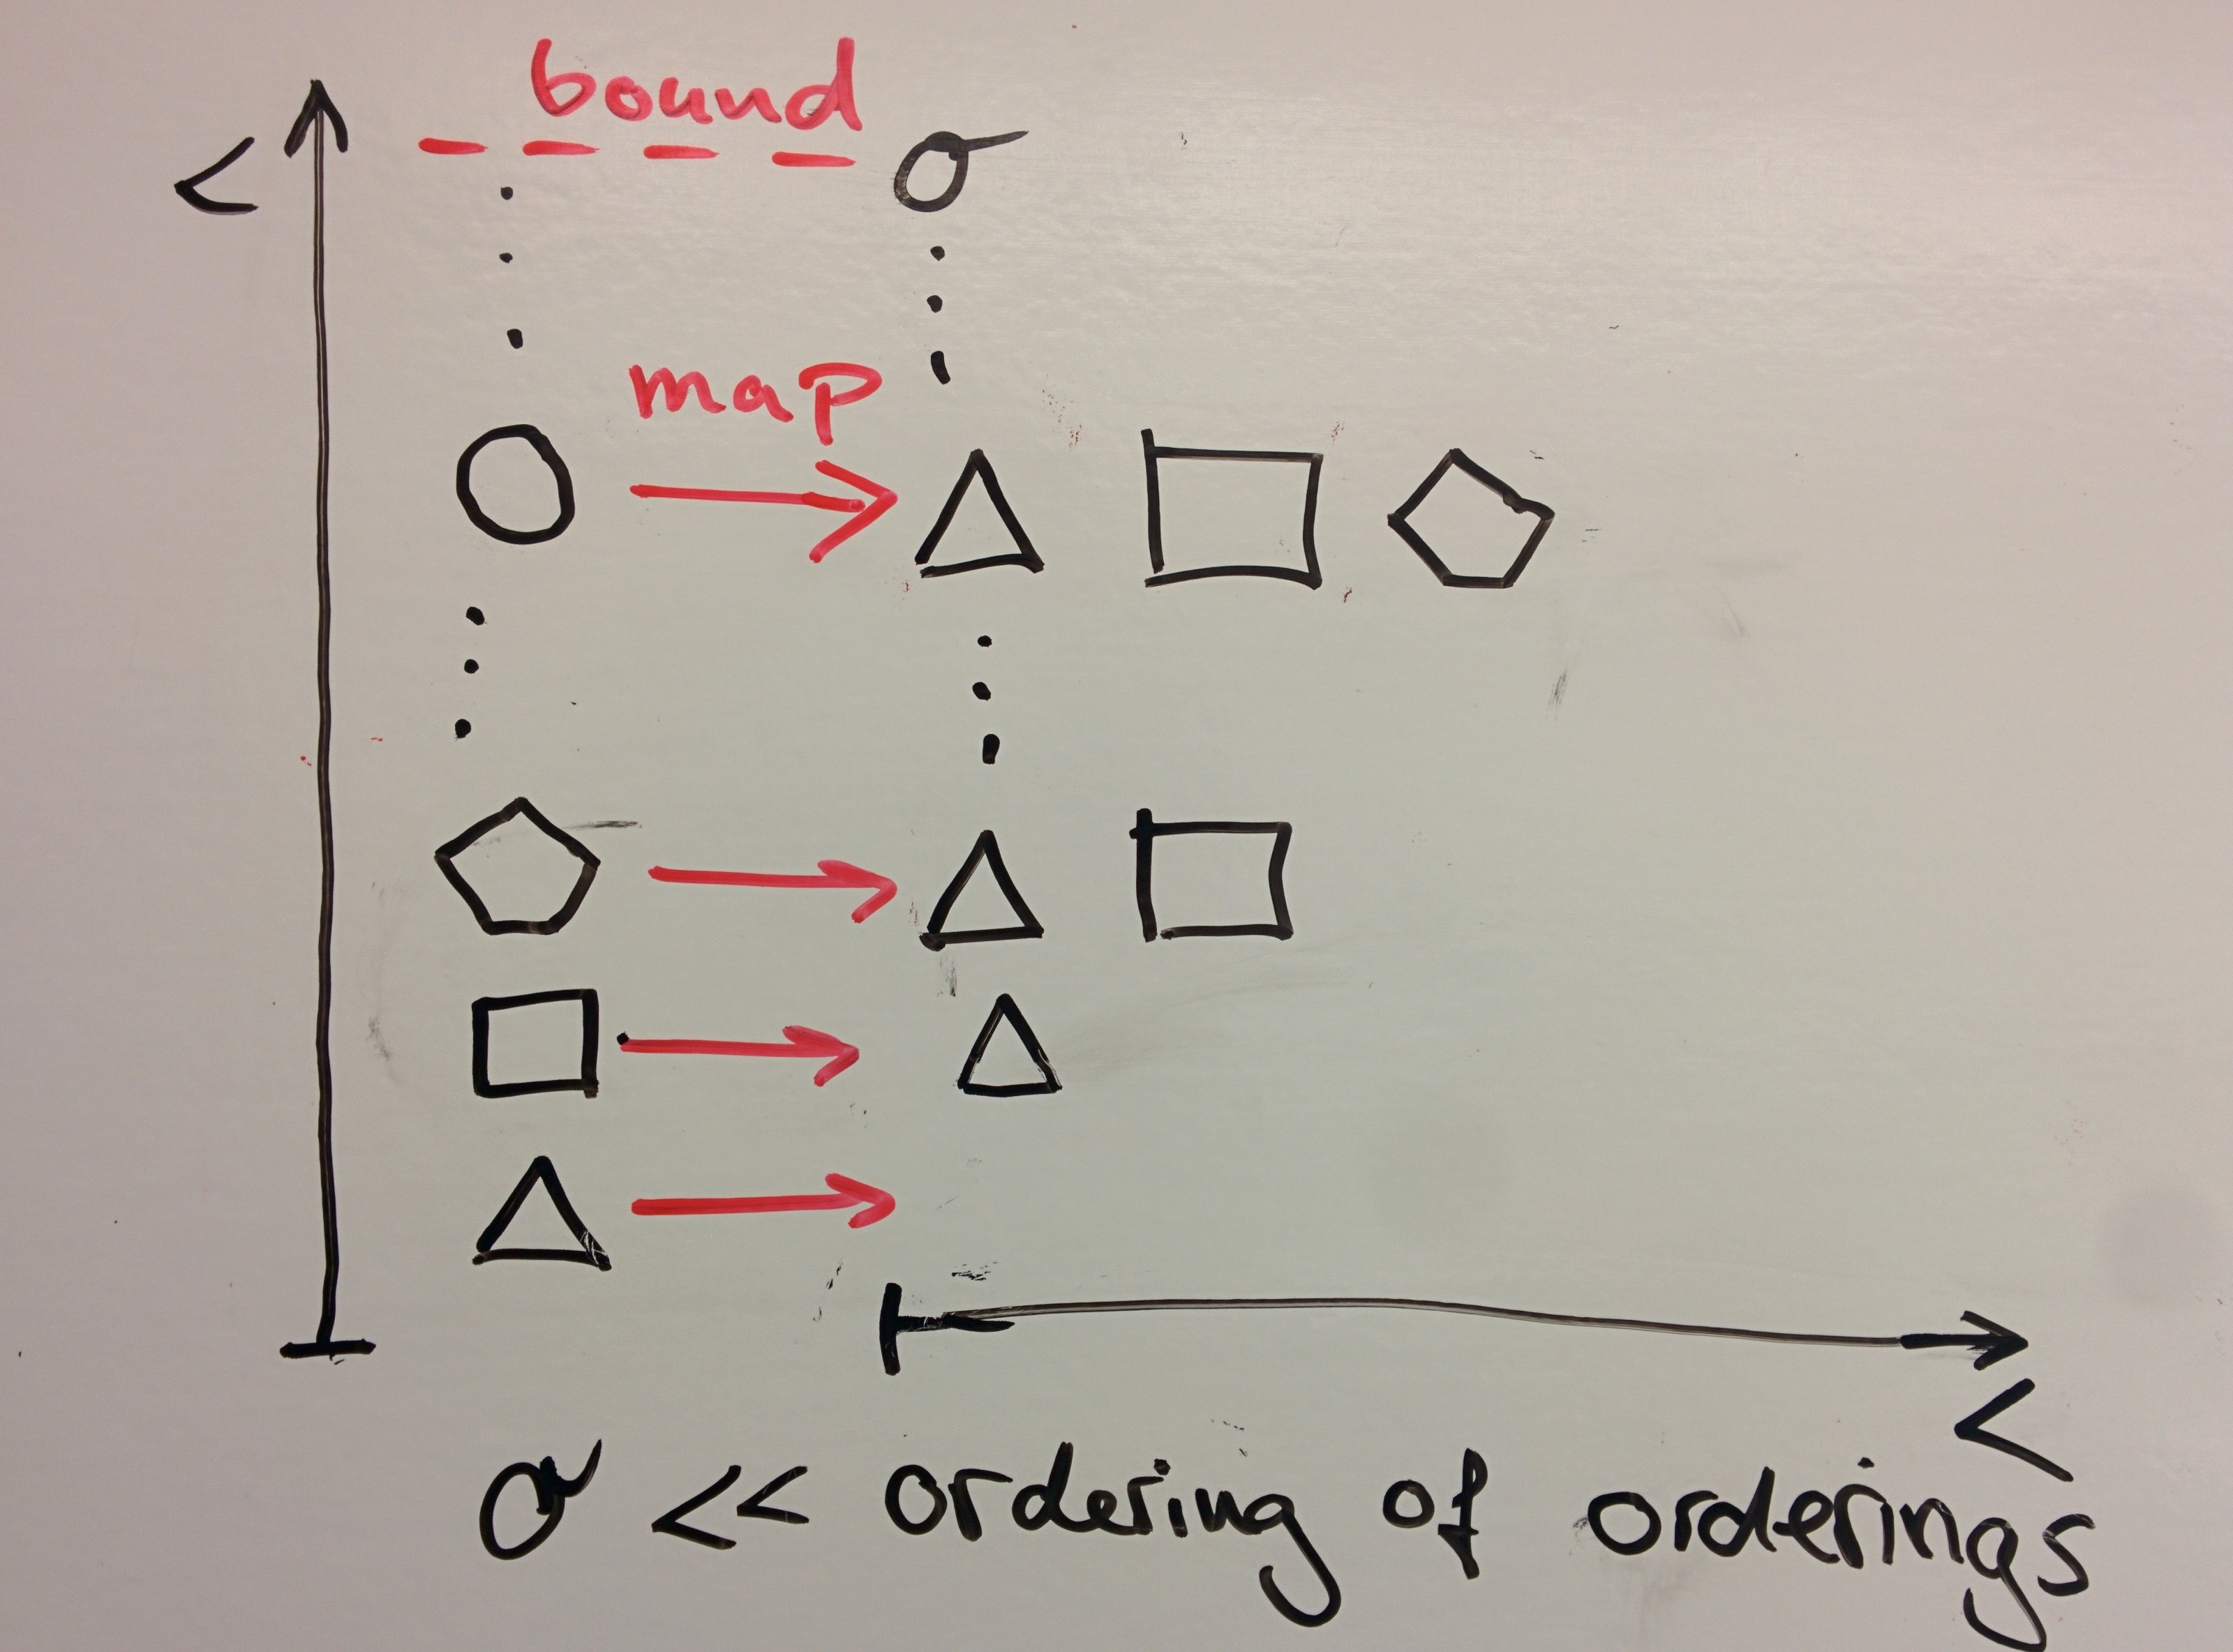 bound
<
σ
map
<
σ << ordering of orderings